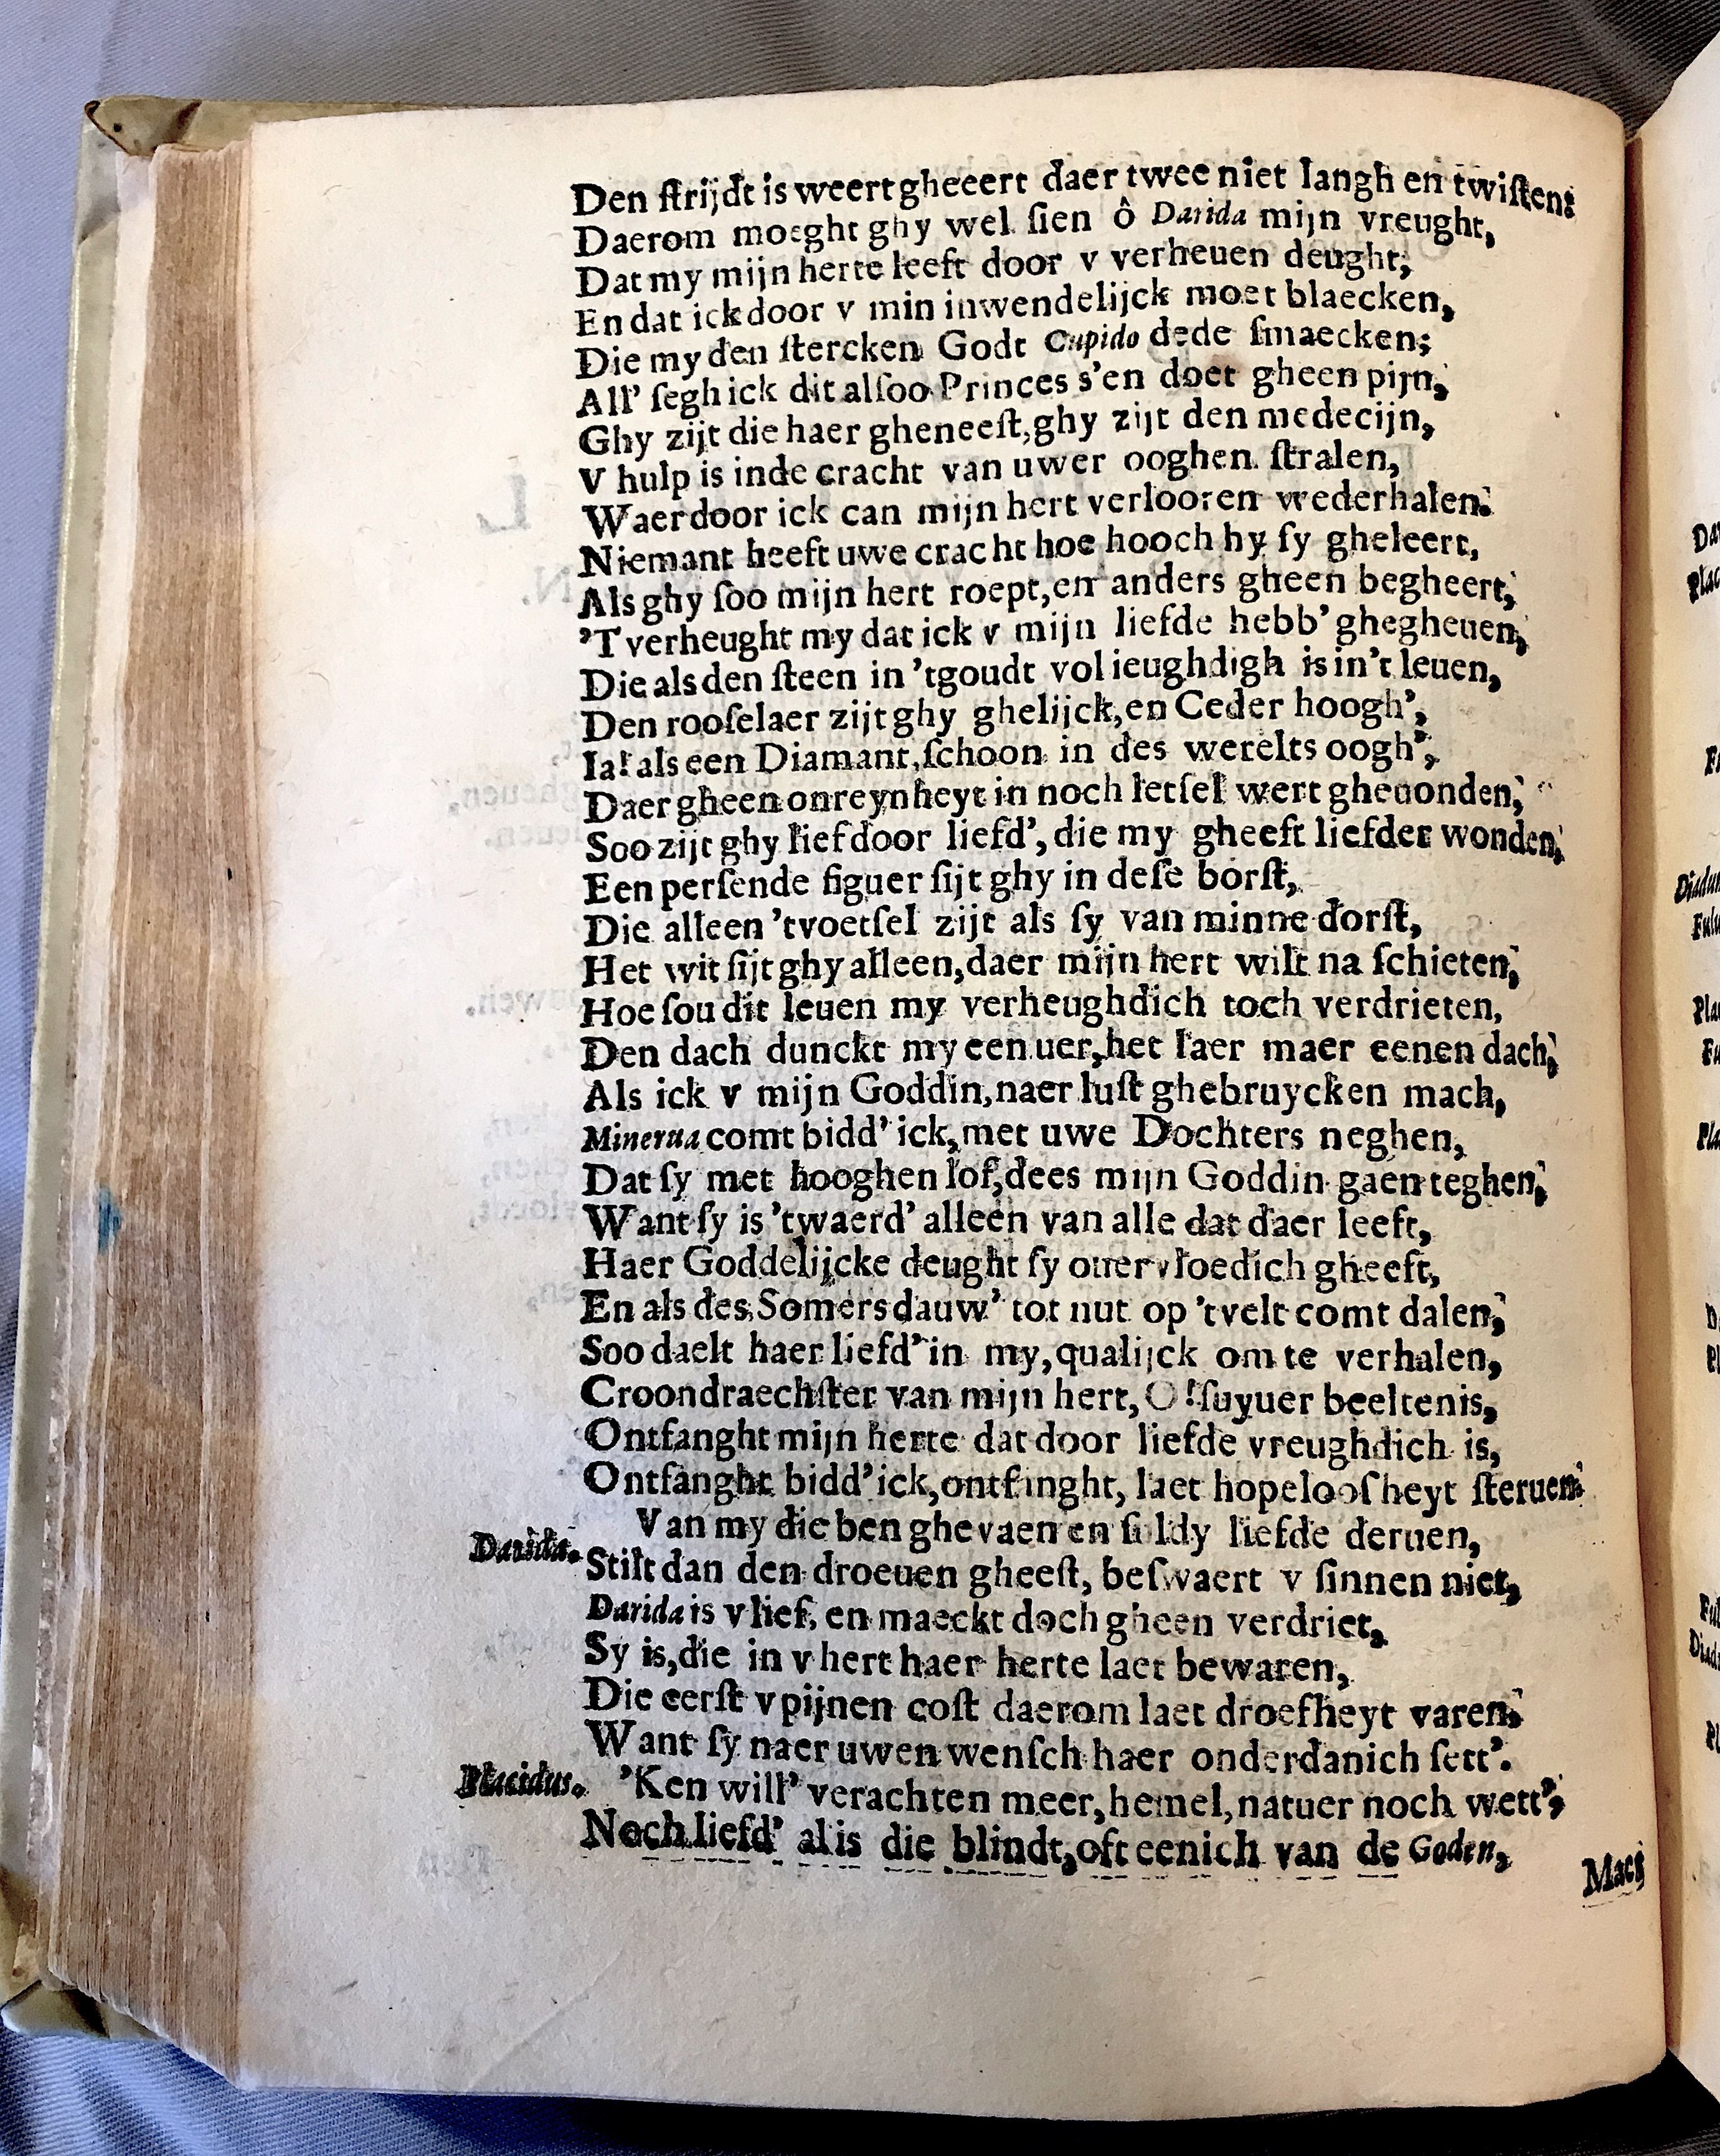 Den ſtrijdt is weert gheeert daer twee niet langh en twiſten:
Daerom moeght ghy wel ſien ô Darida mijn vreught,
Dat my mijn herte leeft door v verheuen deught;
En dat ick door v min inwendelijck moet blaecken,
Die my den ſtercken Godt Cupido dede ſmaecken;
All' ſegh ick dit alſoo Princes s'en doet gheen pijn,
Ghy zijt die haer gheneeſt, ghy zijt den medecijn,
V hulp is inde cracht van uwer ooghen ſtralen,
Waer door ick can mijn hert verlooren wederhalen.
Niemant heeft uwe cracht hoe hooch hy ſy gheleert,
Als ghy ſoo mijn hert roept, en anders gheen begheert;
'T verheught my dat ick v mijn liefde hebb' ghegheuen,
Die als den ſteen in 'tgoudt vol ieughdigh is in't leuen,
Den rooſelaer zijt ghy ghelijck, en Ceder hoogh',
Ia! als een Diamant, ſchoon in des werelts oogh',
Daer gheen onreynheyt in noch letſel wert gheuonden,
Soo zijt ghy lief door liefd', die my gheeft liefdes wonden,
Een perſende figuer ſijt ghy in deſe borſt,
Die alleen 'tvoetſel zijt als ſy van minne dorſt,
Het wit ſijt ghy alleen, daer mijn hert wilt na ſchieten;
Hoe ſou dit leuen my verheughdich toch verdrieten,
Den dach dunckt my een uer, het Iaer maer eenen dach,
Als ick v mijn Goddin, naer luſt ghebruycken mach,
Minerua comt bidd' ick, met uwe Dochters neghen,
Dat ſy met hooghen lof, dees mijn Goddin gaen teghen,
Want ſy is 'twaerd' alleen van alle dat daer leeft,
Haer Goddelijcke deught ſy ouervloedich gheeft,
En als des Somers dauw' tot nut op 'tvelt comt dalen,
Soo daelt haer liefd' in my, qualijck om te verhalen,
Croondraechſter van mijn hert, O! ſuyuer beeltenis,
Ontfanght mijn herte dat door liefde vreughdich is,
Ontfanght bidd' ick, ontfanght, laet hopelooſheyt ſteruen
Van my die ben ghevaen en ſuldy liefde deruen,
Darida. Stilt dan den droeuen gheeſt, beſwaert v ſinnen niet,
Darida is v lief, en maeckt doch gheen verdriet,
Sy is, die in v hert haer herte laet bewaren,
Die eerſt v pijnen coſt daerom laet droefheyt varen;
Want ſy naer uwen wenſch haer onderdanich ſett'.
Placidus. 'Ken will' verachten meer, hemel, natuer noch wett',
Noch liefd' al is die blindt, oft eenich van de Goden,
Maer
Plac